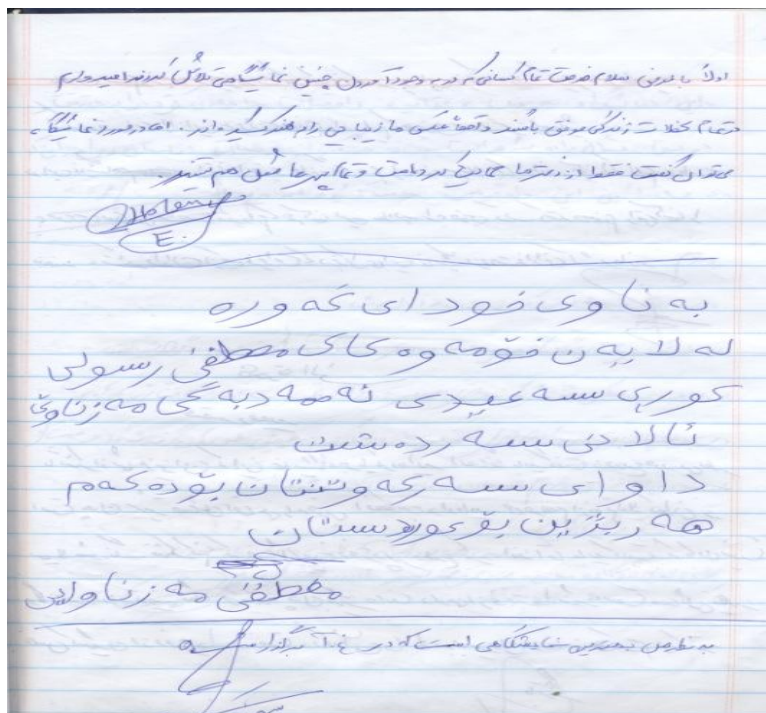 اولاً با عرض سلام خدمت تمام کسانی که در به وجود آمدن چنین نمایشگاهی تلاش کردند امیدوارم
در تمام لحظات زندگی موفق باشند واقعاً عکس ها زیبا می را به کشیده اند. اما در مورد نمایشگاه
می توان گفت فقط از دخترها و تمام پسرها مثل هم نیستند.
E.
به ناوی خودای گه وره
له لایه ن خۆمه وه کاک مصطفی رسولی
کوری سه عیدی ئه حمه دبه گی مه زناوێ
ئالانی سه رده شت
داوای سه رکه وتنتان بۆ ده که م
هه ر بژین بۆ کوردستان
مصطفی مه زناوایی
به نظر من بهترین نمایشگاهی است که در برگزار